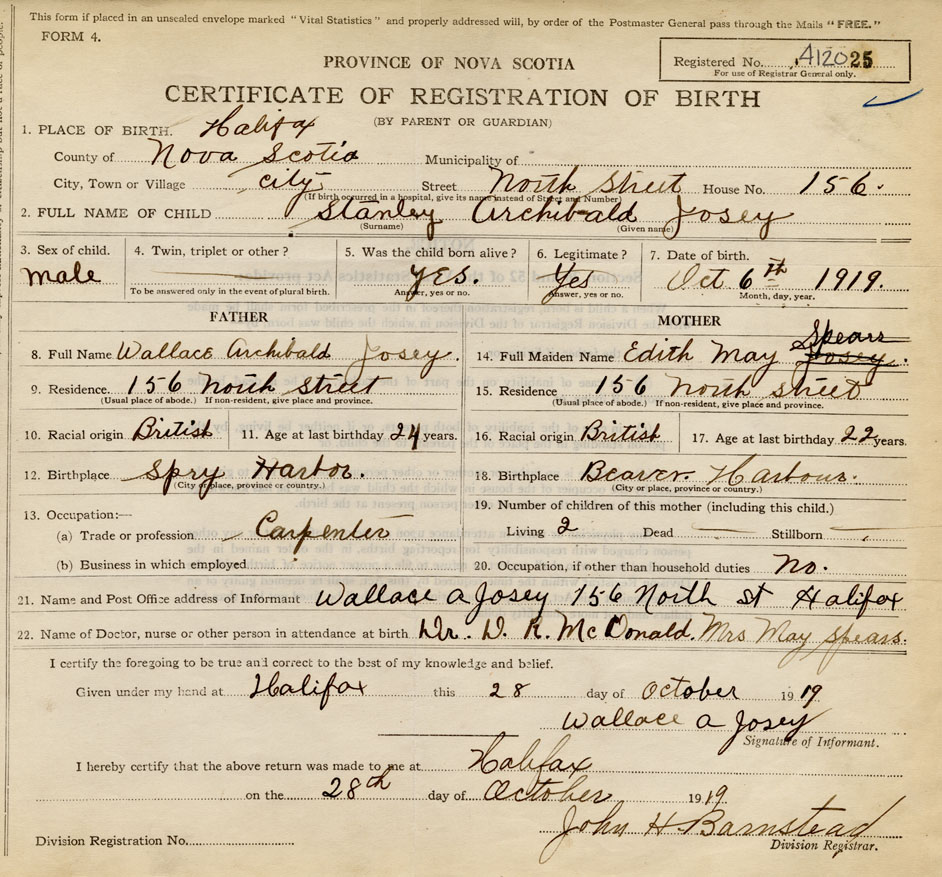 This form if placed in an unsealed envelope marked "Vital Statistics" and properly addressed will, by order of the Postmaster General pass through the Mails "FREE."
FORM 4.
Registered No. A12025
For use of Registrar General only.
PROVINCE OF NOVA SCOTIA
CERTIFICATE OF REGISTRATION OF BIRTH
(BY PARENT OR GUARDIAN)
1. PLACE OF BIRTH. Halifax
County of Nova Scotia Municipality of
City, Town or Village city Street North Street House No. 156.
(If birth occurred in a hospital, give its name instead of Street and Number)
2. FULL NAME OF CHILD Stanley Archibald Josey
(Surname) (Given name)
3. Sex of child. 4. Twin, triplet or other? 5. Was the child born alive? 6. Legitimate? 7. Date of birth.
male YES. Yes Oct 6th 1919.
To be answered only in the event of plural birth. Answer, yes or no. Answer, yes or no. Month, day, year.
FATHER MOTHER
8. Full Name Wallace Archibald Josey. 14. Full Maiden Name Edith May Josey. Spears
9. Residence. 156 North Street 15. Residence 156 North Street
(Usual place of abode.) If non-resident, give place and province. (Usual place of abode.) If non-resident, give place and province.
10. Racial origin British 11. Age at last birthday 24 years. 16. Racial origin British 17. Age at last birthday 22 years.
12. Birthplace Spry Harbor. 18. Birthplace Beaver Harbour.
(City or place, province or country.) (City or place, province or country.)
13. Occupation:— 19. Number of children of this mother (including this child.)
(a) Trade or profession Carpenter Living 2 Dead Stillborn
(b) Business in which employed 20. Occupation, if other than household duties No.
21. Name and Post Office address of Informant Wallace a Josey 156 North st Halifax
22. Name of Doctor, nurse or other person in attendance at birth Dr. D. R. McDonald. Mrs May Spears.
I certify the foregoing to be true and correct to the best of my knowledge and belief.
Given under my hand at Halifax this 28 day of October 1919
Wallace a Josey
Signature of Informant.
I hereby certify that the above return was made to me at Halifax
on the 28th day of October 1919
John H. Barnstead
Division Registration No. Division Registrar.